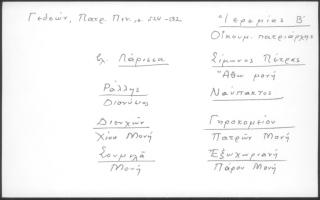 Γεδεών, Πατρ. Πιν., σ. 524-532
Ἱερεμίας Β΄
Οἰκουμ. πατριάρχης
Λάρισσα
Σίμωνος Πέτρας
Ἄθω μονή
Ράλλης
Διονύσιος
Ναύπακτος
Χίου Μονή
Γηροκομείου
Πατρῶν Μονή
Σουμελᾶ
Μονή
Ἐξωχωριανή
Πάρου Μονή